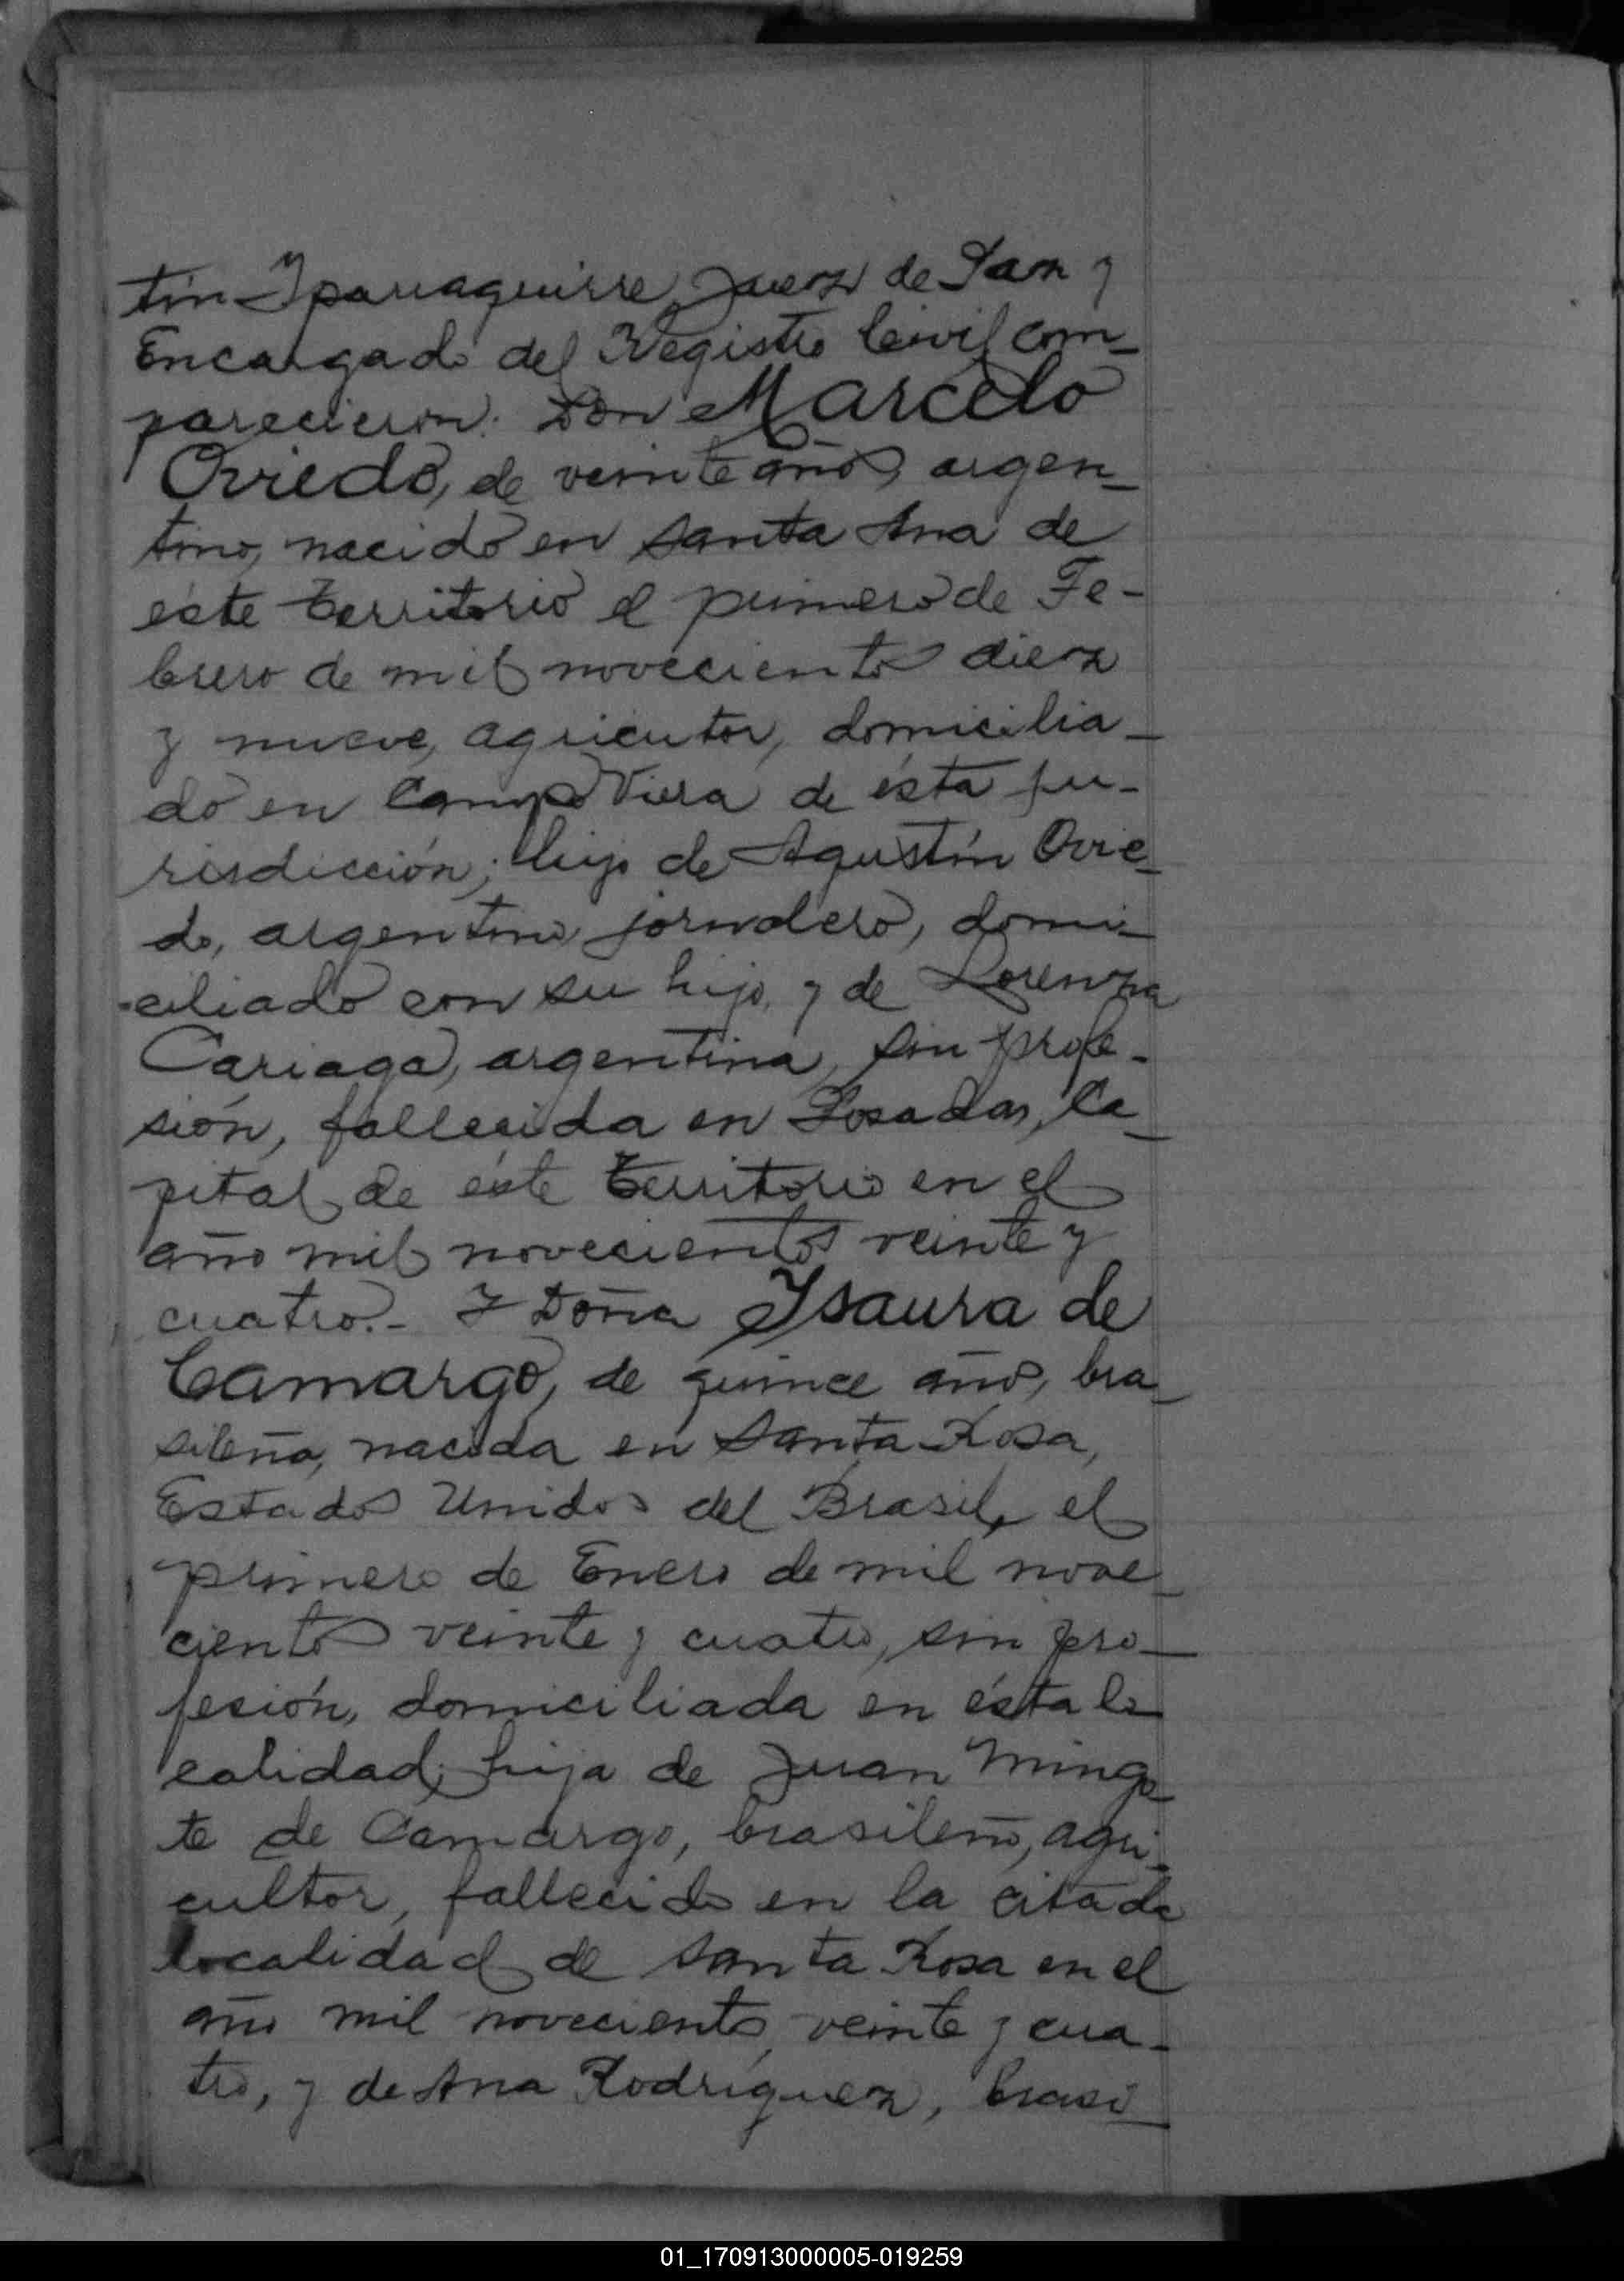 tín Yparraguirre Juez de Paz y
Encargado del Registro Civil com-
parecieron: Don Marcelo
Oviedo, de veinte años, argen-
tino, nacido en Santa Ana de
éste Territorio el primero de Fe-
brero de mil novecientos diez
y nueve, agricutor, domicilia-
do en Campo Viera de ésta ju-
risdicción; hijo de Agustín Ovie-
do, argentino, jornalero, domi-
ciliado con su hijo, y de Lorenza
Cariaga, argentina, sin profe-
sión, fallecida en Posadas, Ca-
pital de éste Territorio en el
año mil novecientos veinte y
cuatro.- Y Doña Ysaura de
Camargo, de quince años, bra-
sileña, nacida en Santa Rosa,
Estados Unidos del Brasil, el
primero de Enero de mil nove-
cientos veinte y cuatro, sin pro-
fesión, domiciliada en ésta lo-
calidad, hija de Juan Mingo-
te de Camargo, brasileño, agri-
cultor, fallecido en la citada
localidad de Santa Rosa en el
año mil novecientos veinte y cua-
tro, y de Ana Rodríguez, brasi-
01_170913000005-019259